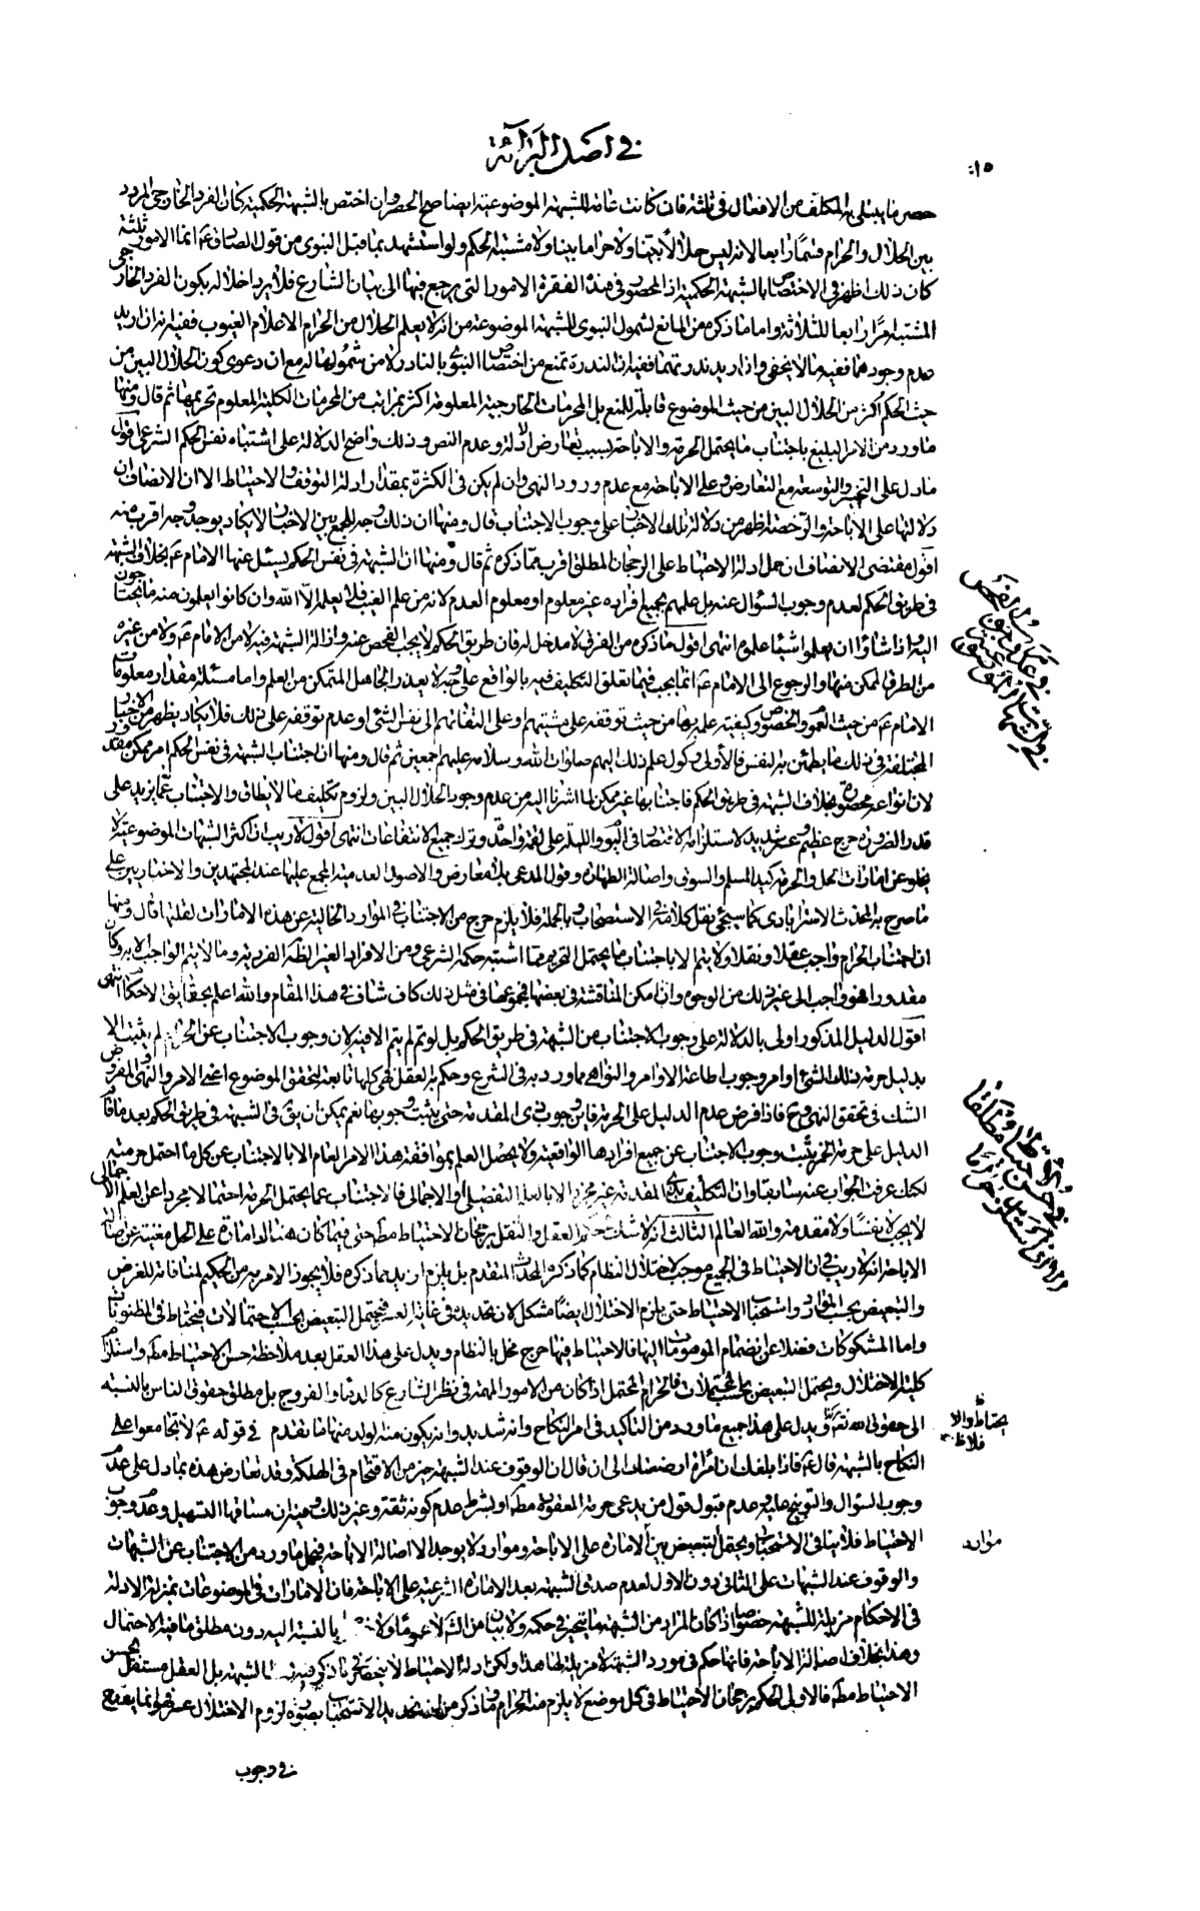 في اصل البرائة
حصر ما يبتلي به المكلف من الافعال في ثلثة فان كانت عامة للشبهة الموضوعية ايضا صح الحصر وان اختص بالشبهة الحكمية كان الفرد الخارجي المردد
بين الحلال والحرام قسمًا رابعا لانه ليس حلالا بينا ولا حراما بينا ولا مشتبه الحكم ولو استشهد بما قبل النبوي من قول الصادق ع انما الامور ثلثة
كان ذلك اظهر في الاختصاص بالشبهة الحكمية اذ المحصور في هذه الفقرة الامور التي يرجع فيها الى بيان الشارع فلا يرد اخلاله بكون الفرد الخارجي
المشتبه امرًا رابعا للثلاثة واما ما ذكره من المانع لشمول النبوي للشبهة الموضوعية من انه لا يعلم الحلال من الحرام الا علام الغيوب ففيه انه ان اريد
عدم وجودهما ففيه ما لا يخفى وان اريد ندرتهما ففيه ان الندرة تمنع من اختصاص النبوي بالنادر لا من شموله له مع ان دعوى كون الحلال البين من
حيث الحكم اكثر من الحلال البين من حيث الموضوع قابلة للمنع بل المحرمات الخارجية المعلومة اكثر بمراتب من المحرمات الكلية المعلوم تحريمها ثم قال ومنها
ما ورد من الامر البليغ باجتناب ما يحتمل الحرمة والاباحة بسبب تعارض الادلة وعدم النص وذلك واضح الدلالة على اشتباه نفس الحكم الشرعي اقول
ما دل على التخيير والتوسعة مع التعارض وعلى الاباحة مع عدم ورود النهي وان لم يكن في الكثرة بمقدار ادلة التوقف والاحتياط الا ان الانصاف ان
دلالتها على الاباحة والرخصة اظهر من دلالة تلك الاخبار على وجوب الاجتناب قال ومنها ان ذلك وجه للجمع بين الاخبار لا يكاد يوجد وجه اقرب منه
اقول مقتضى الانصاف ان حمل ادلة الاحتياط على الرجحان المطلق اقرب مما ذكره ثم قال ومنها ان الشبهة في نفس الحكم يسئل عنها الامام ع بخلاف الشبهة
في طريق الحكم لعدم وجوب السؤال عنه بل علمهم بجميع افراده غير معلوم او معلوم العدم لانه من علم الغيب فلا يعلمه الا الله وان كانوا يعلمون منه ما يحتاجون
اليه واذا شاؤا ان يعلموا شيئا علموه انتهى اقول ما ذكره من الفرق لا مدخل له فان طريق الحكم لا يجب الفحص عنه وازالة الشبهة فيه لا من الامام ع ولا من غيره
من الطرق الممكن منها والرجوع الى الامام ع انما يجب فيما تعلق التكليف فيه بالواقع على وجه لا يعذر الجاهل المتمكن من العلم واما مسئلة مقدار معلومات
الامام ع من حيث العموم والخصوص وكيفية علمه بها من حيث توقفه على مشيتهم او على التفاتهم الى نفس الشئ او عدم توقفه على ذلك فلا يكاد يظهر من الاخبار
المختلفة في ذلك ما يطمئن به النفس فالاولى وكول علم ذلك اليهم صلوات الله وسلامه عليهم اجمعين ثم قال ومنها ان اجتناب الشبهة في نفس الحكم امر ممكن مقدور
لان انواعه محصورة بخلاف الشبهة في طريق الحكم فاجتنابها غير ممكن لما اشرنا اليه من عدم وجود الحلال البين ولزوم تكليف ما لا يطاق والاجتناب عما يزيد على
قدر الضرورة حرج عظيم وعسر شديد لاستلزامه الاقتصار في اليوم والليلة على لقمة واحدة وترك جميع الانتفاعات انتهى اقول لا ريب ان اكثر الشبهات الموضوعية لا
يخلو عن امارات الحل والحرمة كيد المسلم والسوق واصالة الطهارة وقول المدعي بلا معارض والاصول العدمية المجمع عليها عند المجتهدين والاخباريين على
ما صرح به المحدث الاسترابادي كما سيجئ نقل كلامه في الاستصحاب وبالجملة فلا يلزم حرج من الاجتناب في الموارد الخالية عن هذه الامارات لقلتها قال ومنها
ان اجتناب الحرام واجب عقلا ونقلا ولا يتم الا باجتناب ما يحتمل التحريم مما اشتبه حكمه الشرعي ومن الافراد الغير الظاهرة الفردية وما لا يتم الواجب الا به وكان
مقدورا فهو واجب الى غير ذلك من الوجوه وان امكن المناقشة في بعضها فمجموعها في مثل ذلك كاف شاف في هذا المقام والله اعلم بحقايق الاحكام انتهى
اقول الدليل المذكور اولى بالدلالة على وجوب الاجتناب من الشبهة في طريق الحكم بل لو تم لم يتم الا فيه لان وجوب الاجتناب عن الحرام لم يثبت الا
بدليل حرمة ذلك الشئ او امر وجوب اطاعة الاوامر والنواهي مما ورد به في الشرع وحكم به العقل فهي كلها تابعة لتحقق الموضوع اعني الامر والنهي والمفروض
الشك في تحقق النهي وح فاذا فرض عدم الدليل على الحرمة فاين وجوب ذي المقدمة حتى يثبت وجوبها نعم يمكن ان يق في الشبهة في طريق الحكم بعد ما قام
الدليل على حرمة الخمر يثبت وجوب الاجتناب عن جميع افرادها الواقعية ولا يحصل العلم بموافقة هذا الامر العام الا بالاجتناب عن كل ما احتمل حرمته
لكنك عرفت الجواب عنه سابقا وان التكليف بذي المقدمة غير محرز الا بالعلم التفصيلي او الاجمالي فالاجتناب عما يحتمل الحرمة احتمالا مجردا عن العلم الاجمالي
لا يجب لا نفسًا ولا مقدمة والله العالم الثالث انه لا شك في حكم العقل والنقل برجحان الاحتياط مط حتى فيما كان هناك امارة على الحل مغنية عن اصالة
الاباحة الا انه لا ريب في ان الاحتياط في الجميع موجب لاختلال النظام كما ذكره المحدث المتقدم بل يلزم ازيد مما ذكره فلا يجوز الامر به من الحكيم لمنافاته للغرض
والتبعيض بحسب الموارد واستحباب الاحتياط حتى يلزم الاختلال ايضًا مشكل لان تحديده في غاية العسر فيحتمل التبعيض بحسب الاحتمالات فيحتاط في المظنونات
واما المشكوكات فضلا عن انضمام الموهومات اليها فالاحتياط فيها حرج مخل بالنظام ويدل على هذا العقل بعد ملاحظة حسن الاحتياط مط واستلزام
كليته الاختلال ويحتمل التبعيض بحسب المحتملات فالحرام المحتمل اذا كان من الامور المهمة في نظر الشارع كالدماء والفروج بل مطلق حقوق الناس بالنسبة
الى حقوق الله تعالى ويدل على هذا جميع ما ورد من التاكيد في امر النكاح وانه شديد وانه يكون منه الولد منها ما تقدم في قوله ع لا تجامعوا على
النكاح بالشبهة قال ع فاذا بلغك ان امرأة ارضعتك الى ان قال ان الوقوف عند الشبهة خير من الاقتحام في الهلكة وقد تعارض هذه بما دل على عدم
وجوب السؤال والتوبيخ عليه وعدم قبول قول من يدعي حرمة المعقودة مط او بشرط عدم كونه ثقة وغير ذلك وفيه ان مساقها التسهيل وعدم وجوب
الاحتياط فلا ينافي الاستحباب ويحتمل التبعيض بين الامارة على الاباحة وموارد لا يوجد الا اصالة الاباحة فيحمل ما ورد من الاجتناب عن الشبهات
والوقوف عند الشبهات على الثاني دون الاول لعدم صدق الشبهة بعد الامارة الشرعية على الاباحة فان الامارات في الموضوعات بمنزلة الادلة
في الاحكام مزيلة للشبهة خصوصا اذا كان المراد من الشبهة ما يتحير في حكمه ولا بيان من الشارع لا عموما ولا بالنسبة اليه دون مطلق ما فيه الاحتمال
وهذا بخلاف اصالة الاباحة فانها حكم في مورد الشبهة لا مزيلة لها هذا ولكن ادلة الاحتياط لا ينحصر فيما ذكر فيه الشبهة بل العقل مستقل بحسن
الاحتياط مط فالاولى الحكم برجحان الاحتياط في كل موضع لا يلزم منه الحرام وما ذكر من ان تحديد الاستحباب بصورة لزوم الاختلال عسر فهو انما يقدح
في وجوب
الاحتياط والا
فلا ظ
موارد